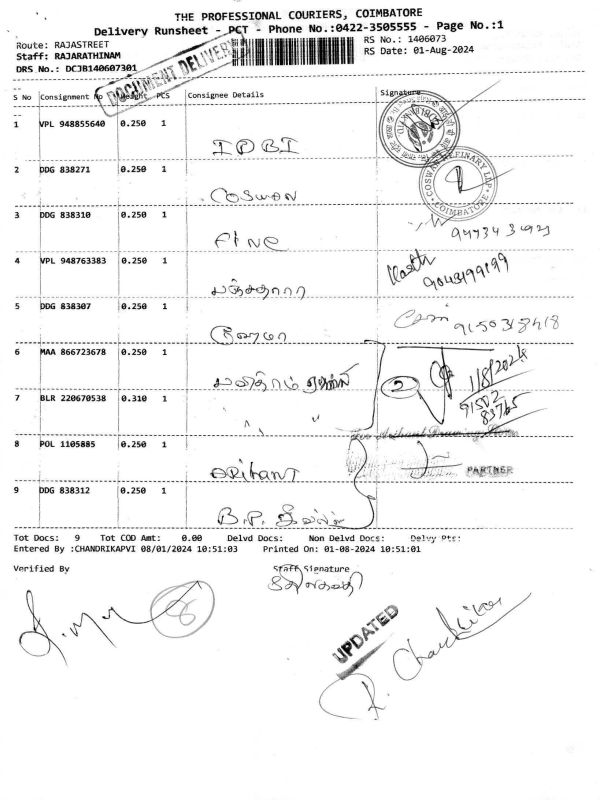 THE PROFESSIONAL COURIERS, COIMBATORE
Delivery Runsheet - PCT - Phone No.:0422-3505555 - Page No.:1
Route: RAJASTREET RS No.: 1406073
Staff: RAJARATHINAM RS Date: 01-Aug-2024
DRS No.: DCJB140607301
DOCUMENT DELIVERY
S No Consignment No Weight PCS Consignee Details Signature
1 VPL 948855640 0.250 1
IDBI
2 DDG 838271 0.250 1
COSWAN
COSWAN REFINARY LLP
COIMBATORE
3 DDG 838310 0.250 1
Fine
4 VPL 948763383 0.250 1
9043199199
5 DDG 838307 0.250 1
9150318418
6 MAA 866723678 0.250 1
2
1/8/2024
7 BLR 220670538 0.310 1
" "
91502
83765
8 POL 1105885 0.250 1
ARIHANT
PARTNER
9 DDG 838312 0.250 1
B.P.
Tot Docs: 9 Tot COD Amt: 0.00 Delvd Docs: Non Delvd Docs: Delvy Pts:
Entered By :CHANDRIKAPVI 08/01/2024 10:51:03 Printed On: 01-08-2024 10:51:01
Verified By Staff Signature
8
UPDATED